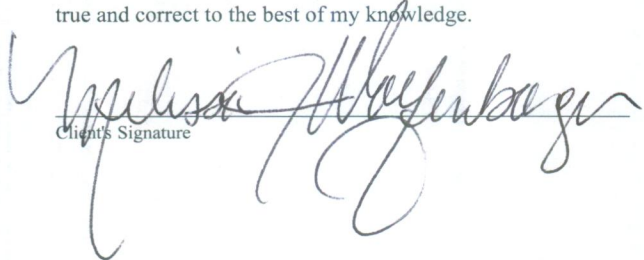 true and correct to the best of my knowledge.
Melissa
Client's Signature